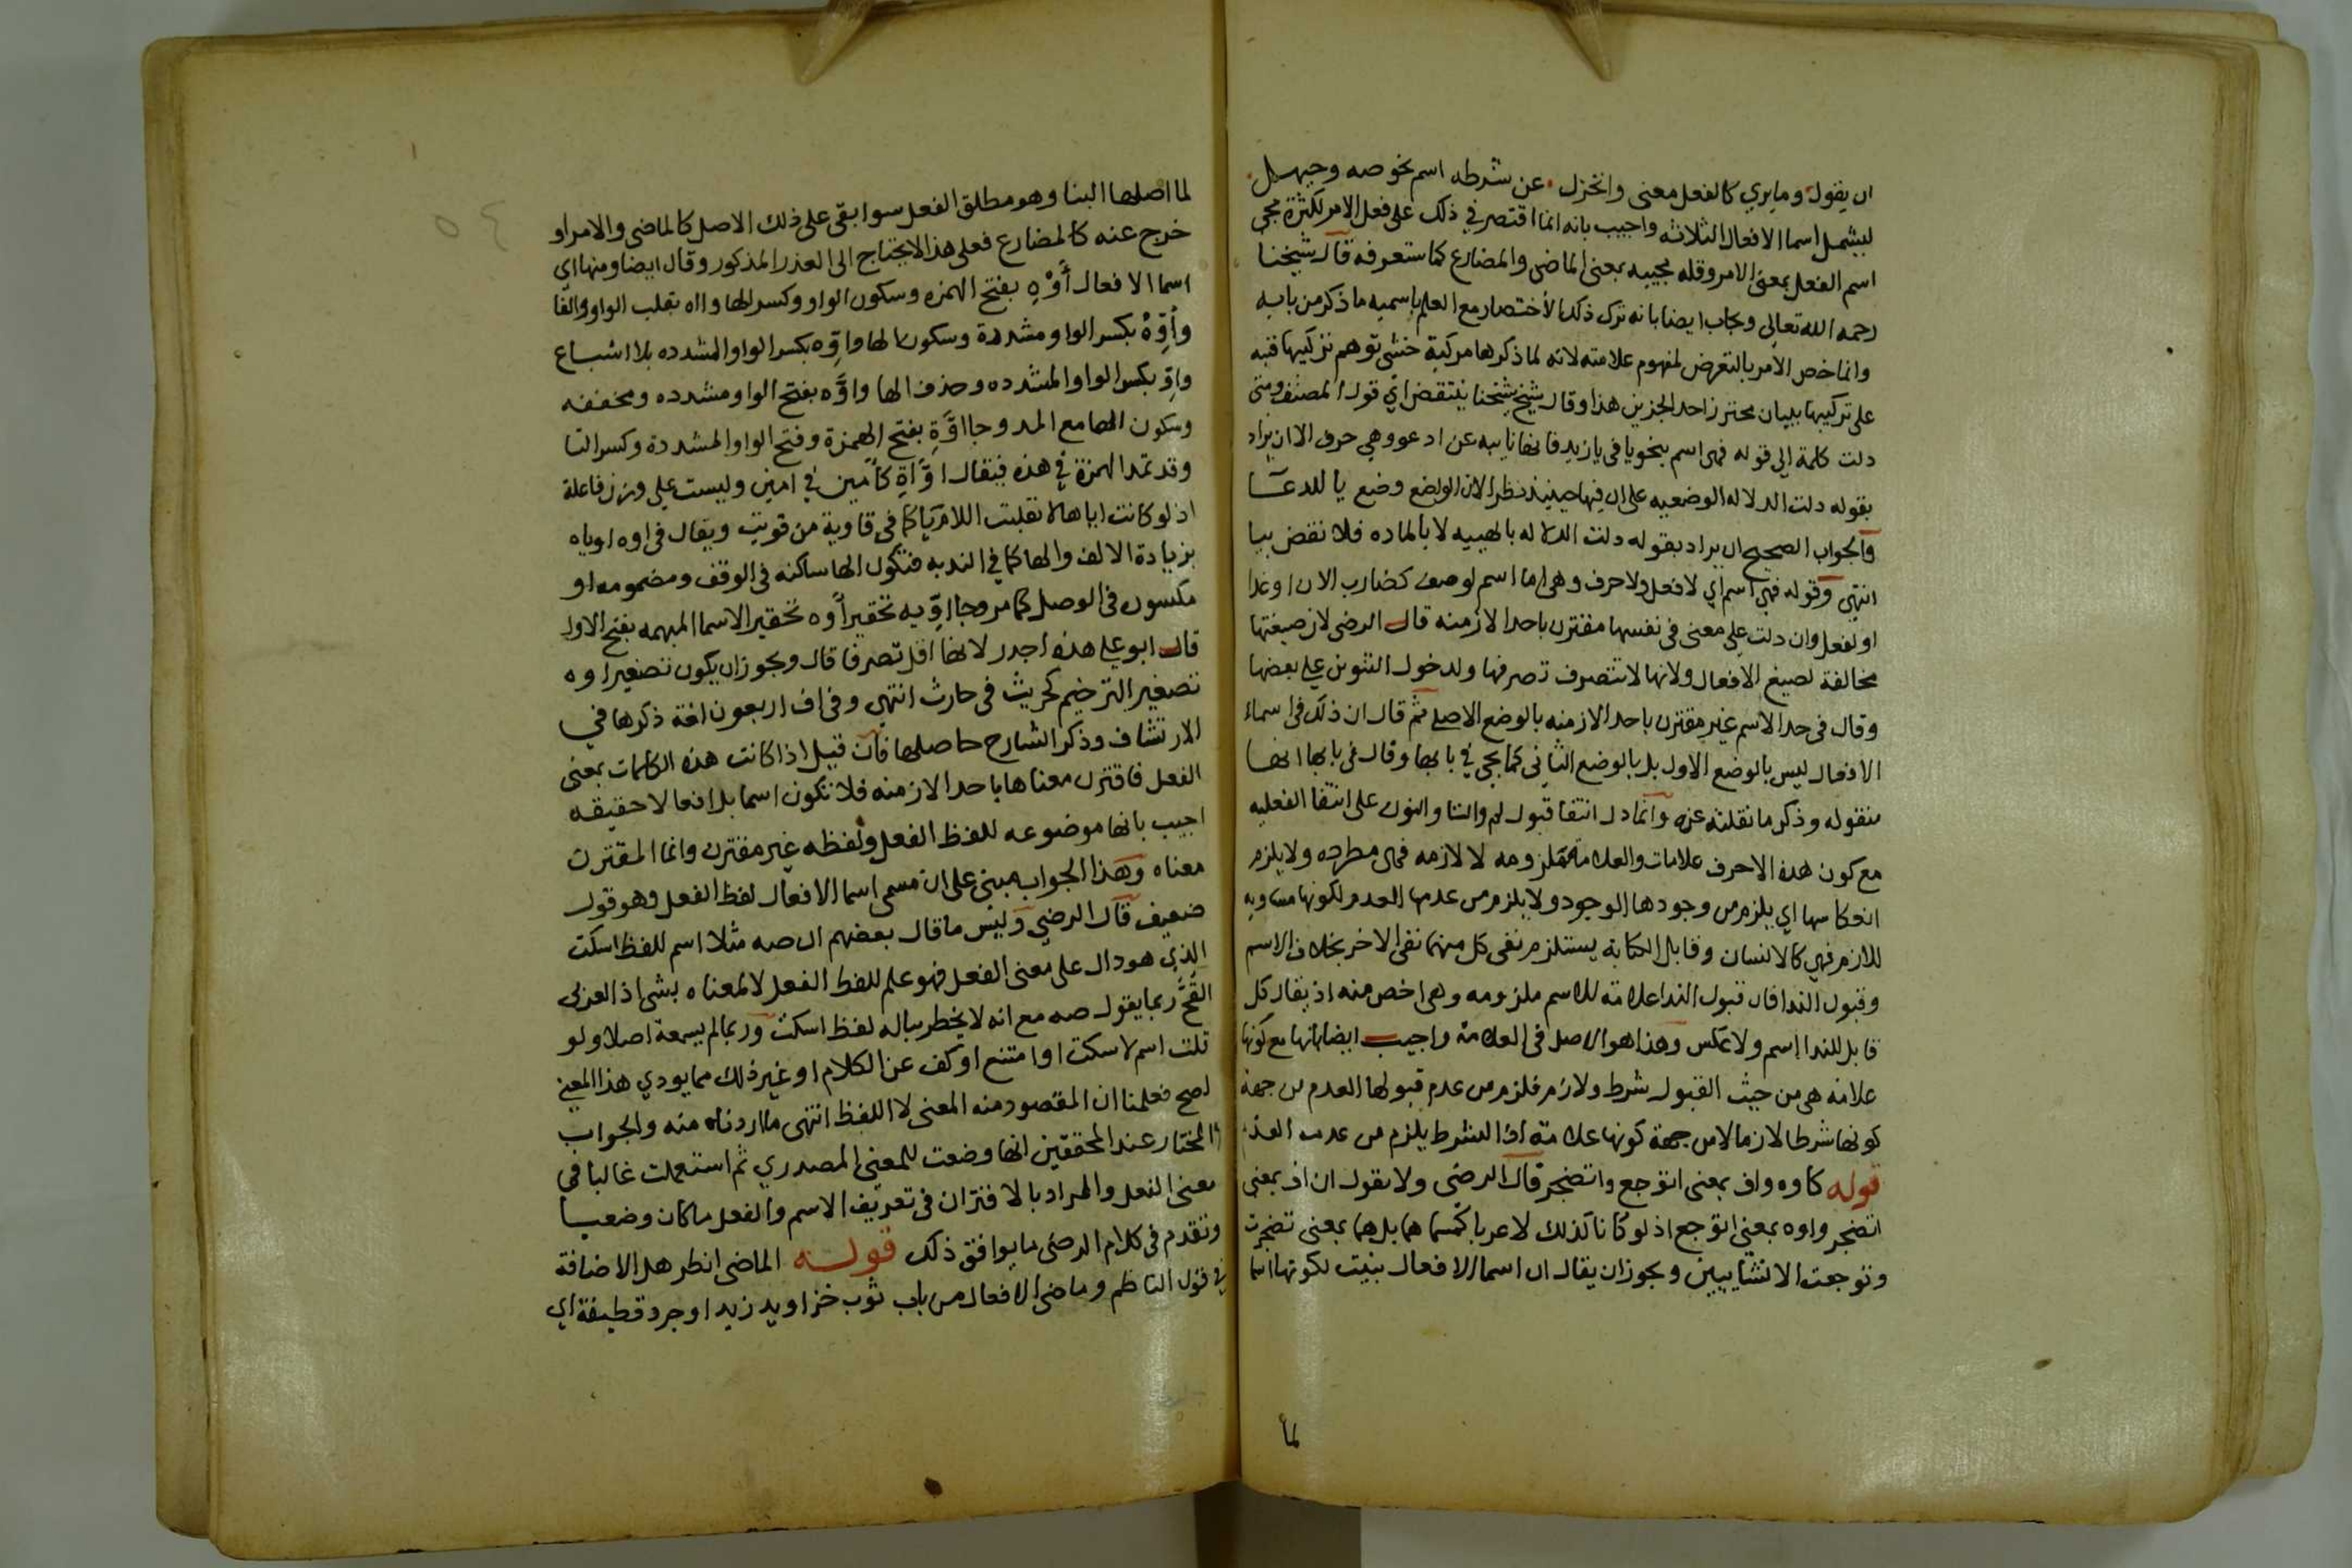 ان يقول وما يري كالفعل معنى وانخزل عن شرطه اسم نحو صه وحيهل
ليشمل اسما الافعال الثلاثه واجيب بانه انما اقتصر في ذلك على فعل الامر لكثرة مجى
اسم الفعل بمعنى الامر وقله مجييه بمعنى الماضى والمضارع كما ستعرفه قال شيخنا
رحمه الله تعالى ويجاب ايضا بانه ترك ذلك لاختصار مع العلم باسميه ما ذكر من بابه
وانما خص الامر بالتعرض لمفهوم علامته لانه لما ذكرها مركبة خشي توهم تركيبها فنبه
على تركيبها ببيان محترز احد الجزين هذا وقال شيخ شيخنا ينتقض اي قول المصنف ومتى
دلت كلمة الى قوله فهى اسم بنحو يا فى يا زيد فانها نايبه عن ادعو وهي حرف الا ان يراد
بقوله دلت الدلاله الوضعيه على ان فيها حينيذ نظرا لان الواضع وضع يا للدعا
والجواب الصحيح ان يراد بقوله دلت الدلاله بالهييه لا بالماده فلا نقض بيا
انتهى وقوله فهى اسم اي لا فعل ولا حرف وهى اما اسم لوصف كضارب الان او غدا
او لفعل وان دلت على معنى فى نفسها مقترن باحد الازمنه قال الرضى لان صيغتها
مخالفة لصيغ الافعال ولانها لا تتصرف تصرفها ولدخول التنوين على بعضها
وقال فى حد الاسم غير مقترن باحد الازمنه بالوضع الاصلى ثم قال ان ذلك فى اسماء
الافعال ليس بالوضع الاول بل بالوضع الثانى كما يجى في بابها وقال فى بابها انها
منقوله وذكر ما نقلته عنه وانما دل انتفا قبول لم والتا والنون على انتفا الفعليه
مع كون هذه الاحرف علامات والعلامة ملزومه لا لازمه فهى مطرده ولا يلزم
انعكاسها اي يلزم من وجودها الوجود ولا يلزم من عدمها العدم لكونها مساويه
للازم فهي كالانسان وقابل الكتابة يستلزم نفى كل منهما نفى الاخر بخلاف الاسم
وقبول الندا فان قبول الندا علامة للاسم ملزومه وهى اخص منه اذ يقال كل
قابل للندا اسم ولا عكس وهذا هو الاصل فى العلامة واجيب ايضا بانها مع كونها
علامه هى من حيث القبول شرط ولازم فلزم من عدم قبولها العدم من جهة
كونها شرطا لازما لا من جهة كونها علامة اذ الشرط يلزم من عدمه العدم
قوله كاوه واف بمعنى اتوجع واتضجر قال الرضى ولا نقول ان اف بمعنى
اتضجر واوه بمعنى اتوجع اذ لو كانا كذلك لاعربا كمسماهما بل هما بمعنى تضجرت
وتوجعت الانشاييين ويجوز ان يقال ان اسما الافعال بنيت لكونها اسما
لما
لما اصلها البنا وهو مطلق الفعل سوا بقى على ذلك الاصل كالماضى والامر او
خرج عنه كالمضارع فعلى هذا لا يحتاج الى العذر المذكور وقال ايضا ومنها اي
اسما الافعال أَوْهِ بفتح الهمزه وسكون الواو وكسر الها واه بقلب الواو الفا
وأَوِّهْ بكسر الواو مشددة وسكون الها واوِّه بكسر الواو المشدده بلا اشباع
واوِّ بكسر الواو المشدده وحذف الها واوَّه بفتح الواو مشدده ومخففه
وسكون الها مع المد وجا اوَّةِ بفتح الهمزة وفتح الواو المشددة وكسر التا
وقد تمد الهمزة في هذه فيقال اوَّاةِ كآمين في امين وليست على وزن فاعلة
اذ لو كانت اياها لانقلبت اللام ياكما فى قاوية من قويت ويقال فى اوه اوياه
بزيادة الالف والها كما في الندبه فتكون الها ساكنه فى الوقف ومضمومه او
مكسوره فى الوصل كما مر وجا اوِّيه تحقير أوه تحقير الاسما المبهمه بفتح الاول
قال ابو على هذه اجدر لانها اقل تصرفا قال ويجوز ان يكون تصغير اوه
تصغير الترخيم كحريث فى حارث انتهى وفى اف اربعون لغة ذكرها في
الارتشاف وذكر الشارح حاصلها فان قيل اذا كانت هذه الكلمات بمعنى
الفعل فاقترن معناها باحد الازمنه فلا تكون اسما بل افعالا حقيقه
اجيب بانها موضوعه للفظ الفعل ولفظه غير مقترن وانما المقترن
معناه وهذا الجواب مبنى على ان مسمى اسما الافعال لفظ الفعل وهو قول
ضعيف قال الرضى وليس ما قال بعضهم ان صه مثلا اسم للفظ اسكت
الذي هو دال على معنى الفعل فهو علم للفظ الفعل لا لمعناه بشى اذ العربي
القحّ ربما يقول صه مع انه لا يخطر بباله لفظ اسكت وربما لم يسمعه اصلا ولو
قلت اسم لاسكت او امتنع او كف عن الكلام او غير ذلك مما يودي هذا المعنى
لصح فعلمنا ان المقصود منه المعنى لا اللفظ انتهى ما اردناه منه والجواب
المختار عند المحققين انها وضعت للمعنى المصدري ثم استعملت غالبا فى
معنى الفعل والمراد بالاقتران فى تعريف الاسم والفعل ما كان وضعيا
وتقدم فى كلام الرضى ما يوافق ذلك قوله الماضى انظر هل الاضافة
في قول الناظم وماضى الافعال من باب ثوب خز او يد زيد او جرد قطيفة اي
٥٤